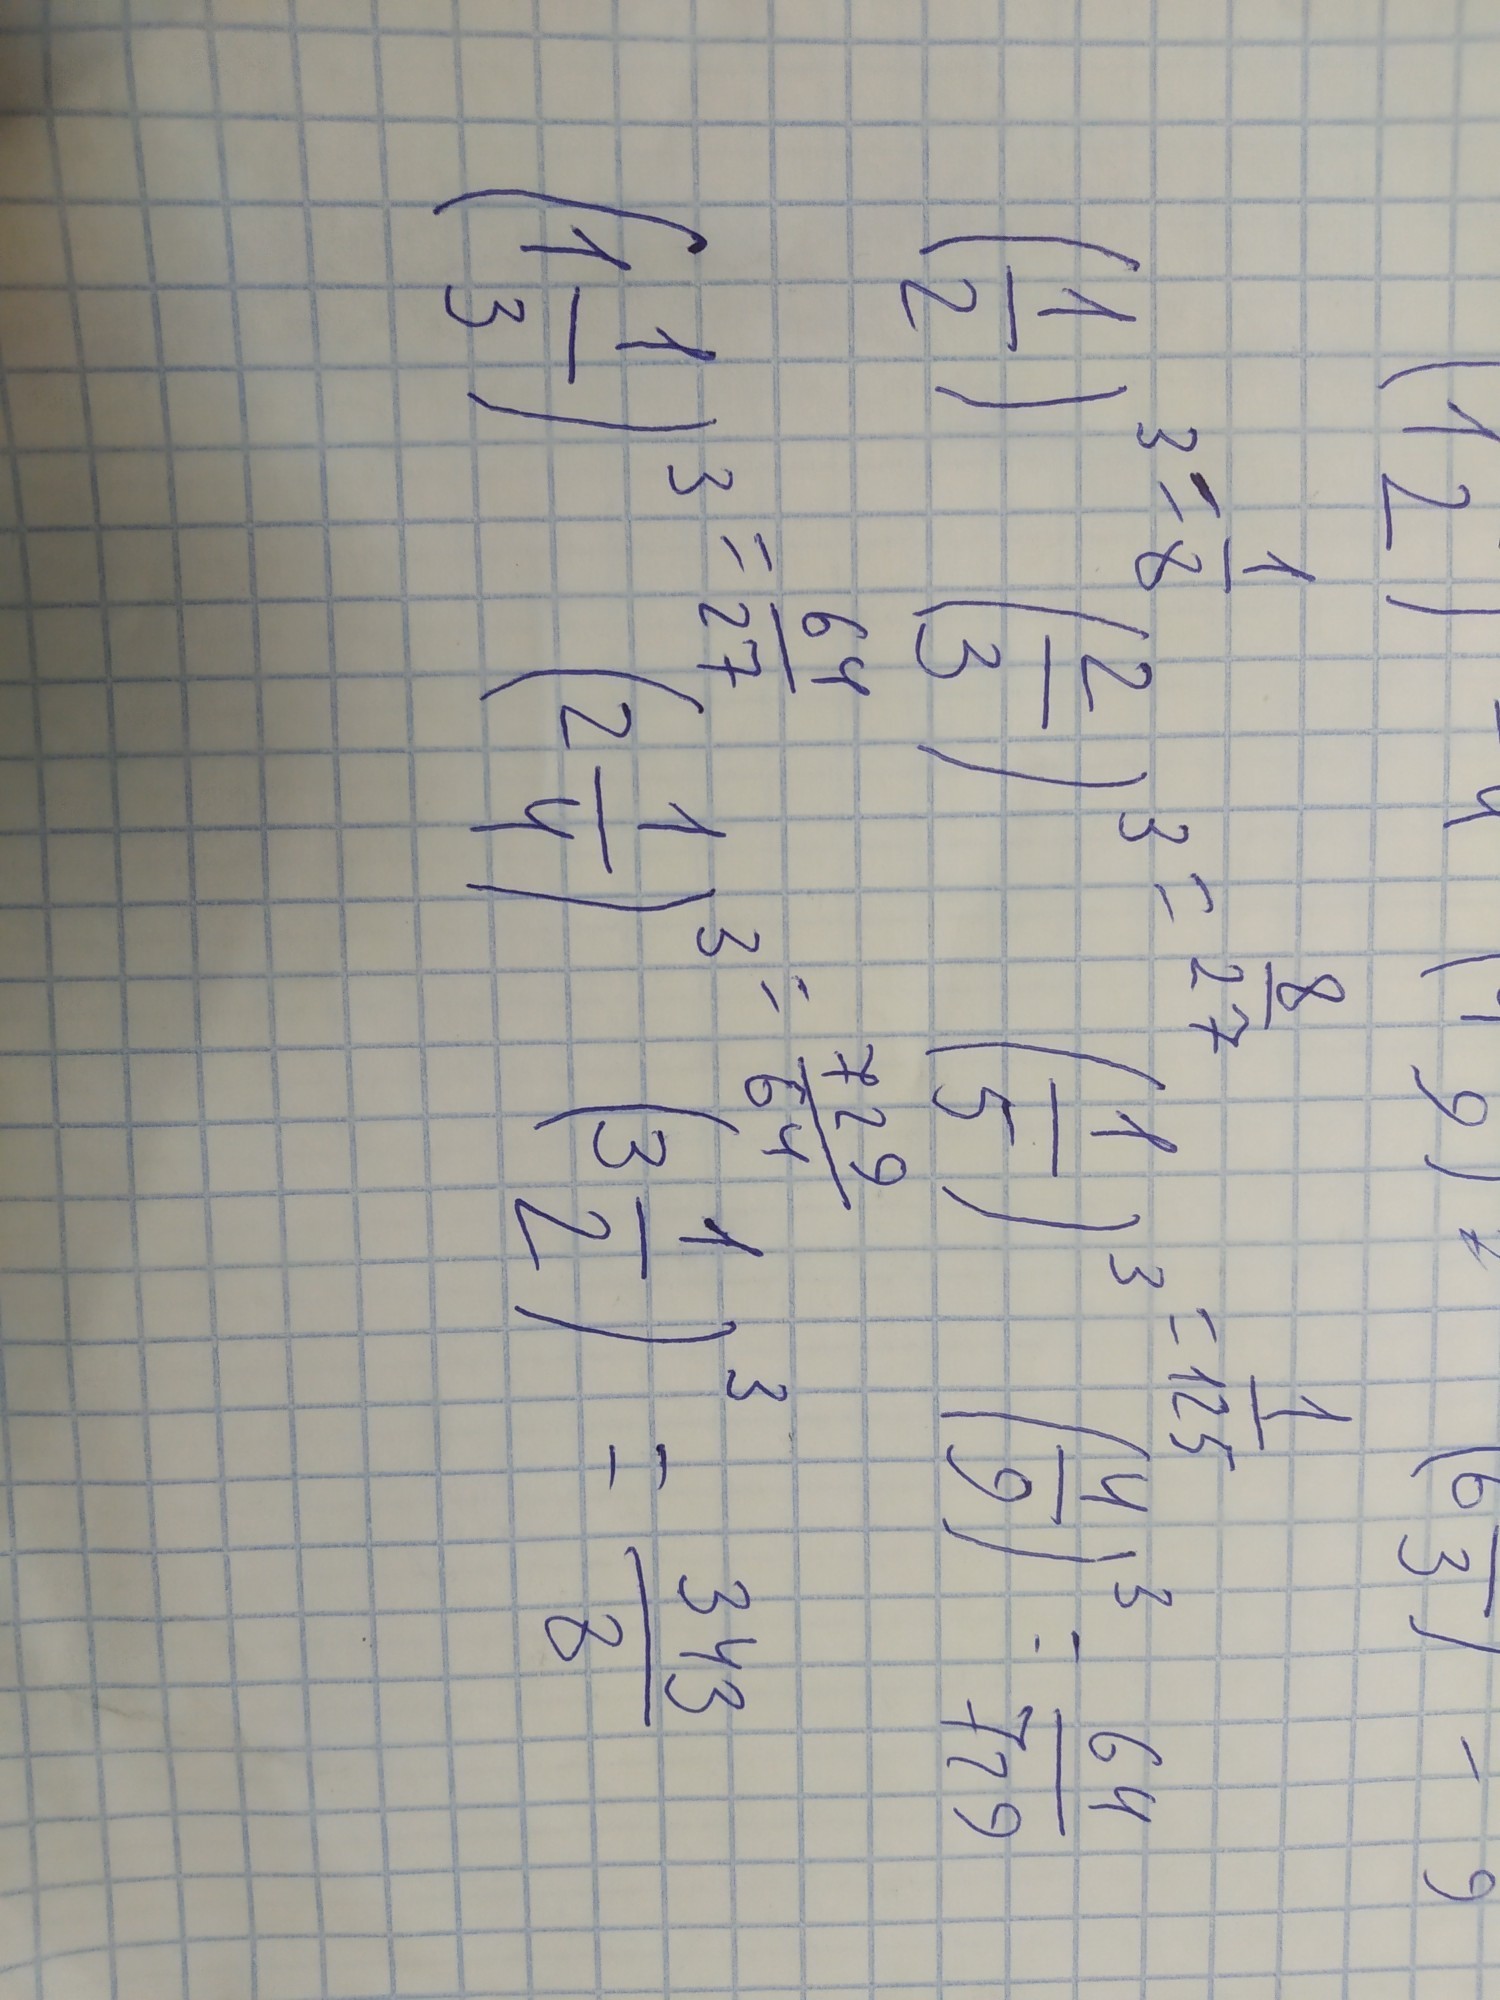 (1/2)³ = 1/8 (2/3)³ = 8/27 (1/5)³ = 1/125 (4/9)³ = 64/729
(1 1/3)³ = 64/27 (2 1/4)³ = 729/64 (3 1/2)³ = 343/8